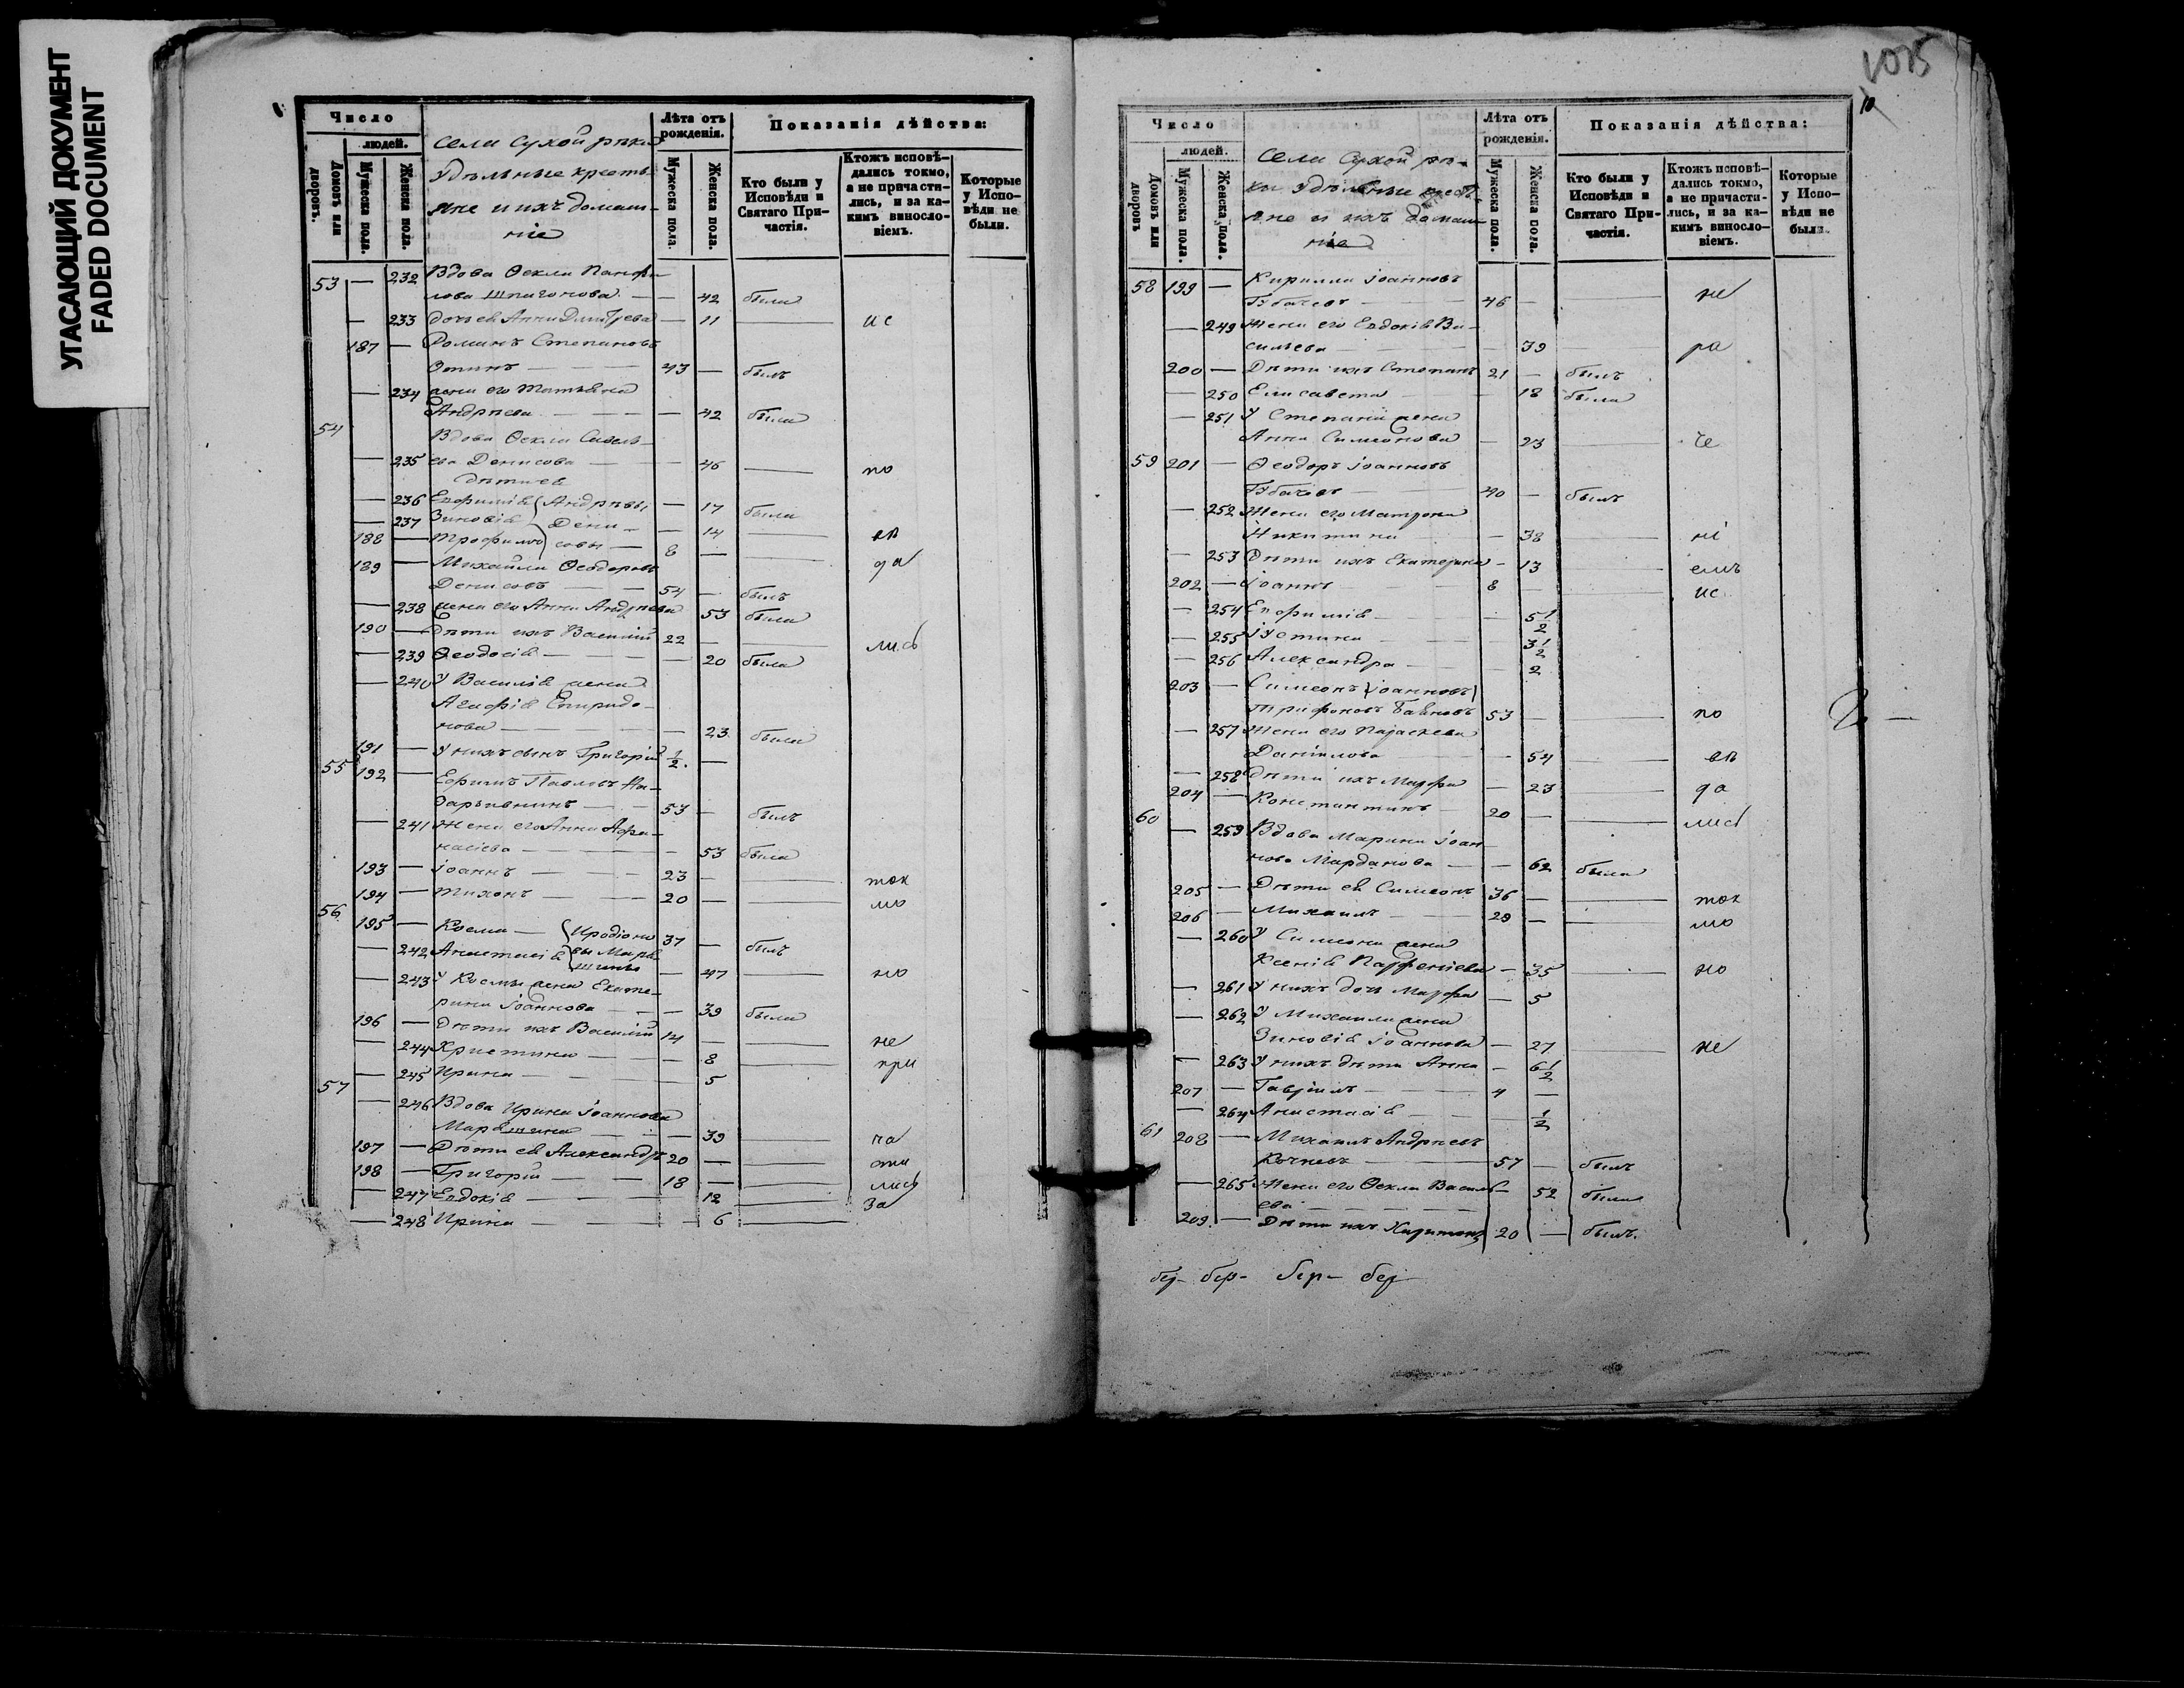 УГАСАЮЩИЙ ДОКУМЕНТ
FADED DOCUMENT
Число
людей.
Домовъ или дворовъ.
Мужеска пола.
Женска пола.
Села Сухой рѣки
Удѣльные кресть-
яне и ихъ домаш-
ніе
Лѣта отъ рожденія.
Мужеска пола.
Женска пола.
Показанія дѣйства:
Кто были у Исповѣди и Святаго Причастія.
Ктожъ исповѣ-
дались токмо,
а не причасти-
лись, и за ка-
кимъ винословіемъ.
Которые у Исповѣди не были.
53 — 232 Вдова Ѳекла Панфи-
лова — — 42 была
— 233 дочь ея Анна Дмитрева — 11 — ис
187 — Романъ Степановъ
43 — былъ
— 234 жена его Татьяна
Андрѣева — — 42 была
54 Вдова Ѳекла Савель-
— 235 ева Денисова — — 46 — по
дѣти ея
— 236 Евфимія Андрѣевы — 17 была
— 237 Зиновія Дени- — 14 — вѣ
188 — Трофимъ совы — 8 — да
189 — Михаила Ѳеодоровъ
Денисовъ — 54 — былъ
— 238 жена его Анна Андрѣева 53 была
190 — Дѣти ихъ Василій 22 — — лись
— 239 Ѳеодосія — — 20 была
— 240 У Василія жена
Агафія Спиридо-
нова — — 23 была
191 — У нихъ сынъ Григорій 1/2 —
55 192 — Ефимъ Павловъ На-
53 — былъ
— 241 Жена его Анна Афа-
насіева — — 53 была
193 — Іоаннъ — 23 — — ток
194 — Тихонъ — 20 — — мо
56
195 — Косма — Иродіоно 37 — былъ
— 242 Анастасія вы — 47 — но
— 243 У Космы жена Екате-
рина Іоаннова — — 39 была
196 — Дѣти ихъ Василій 14 — — не
— 244 Христина — — 8 — при
— 245 Ирина — — 5
57
— 246 Вдова Ирина Іоаннова
— 39 — ча
197 — Дѣти ея Александръ 20 — — сти
198 — Григорій — 18 — — лись
— 247 Евдокія — — 12 — За
— 248 Ирина — — 6 —
1075
10
Число
людей.
Домовъ или дворовъ
Мужеска пола.
Женска пола.
Села Сухой рѣ-
ки Удѣльные кресть-
яне и ихъ домаш-
ніе
Лѣта отъ рожденія.
Мужеска пола.
Женска пола.
Показанія дѣйства:
Кто были у Исповѣди и Святаго Причастія.
Ктожъ исповѣ-
дались токмо,
а не причасти-
лись, и за ка-
кимъ винословіемъ.
Которые у Исповѣди не были.
58 199 — Кирилла Іоанновъ
Губачевъ — 46 — — не
— 249 Жена его Евдокія Ва-
сильева — — 39 — ра
200 — Дѣти ихъ Степанъ 21 — былъ
— 250 Елисавета — — 18 была
— 251 У Степана жена
Анна Симеонова — 23 — че
59 201 — Ѳеодоръ Іоанновъ
Губачевъ — 40 — былъ
— 252 Жена его Матрона
Никитина — 38 — ні
— 253 Дѣти ихъ Екатерина — 13 — емъ
202 — Іоаннъ 8 — — ис
— 254 Евфимія — — 5 1/2
— 255 Іустина — — 3 1/2
— 256 Александра — — 2
203 — Симеонъ (Іоанновъ)
Трифоновъ 53 — — по
— 257 Жена его Параскева
Даніилова — 54 — вѣ
— 258 дѣти ихъ Марфа — 23 — да
204 — Константинъ — 20 — — лись
60
— 259 Вдова Марина Іоан-
нова Марданова — — 62 была
205 — Дѣти ея Симеонъ 36 — — ток
206 — Михаилъ — 29 — — мо
— 260 У Симеона жена
Ксенія Парфеніева — 35 — но
— 261 У нихъ дочь Марфа — 5
— 262 У Михаила жена
Зиновія Іоаннова — 27 — не
— 263 У нихъ дѣти Анна — 6 1/2
207 — Гавріилъ — 4 —
— 264 Анастасія — — 1/2
61 208 — Михаилъ Андрѣевъ
Кочневъ — 57 — былъ
— 265 Жена его Ѳекла Василь- 52 была
ева —
209 — Дѣти ихъ Харитонъ 20 — былъ.